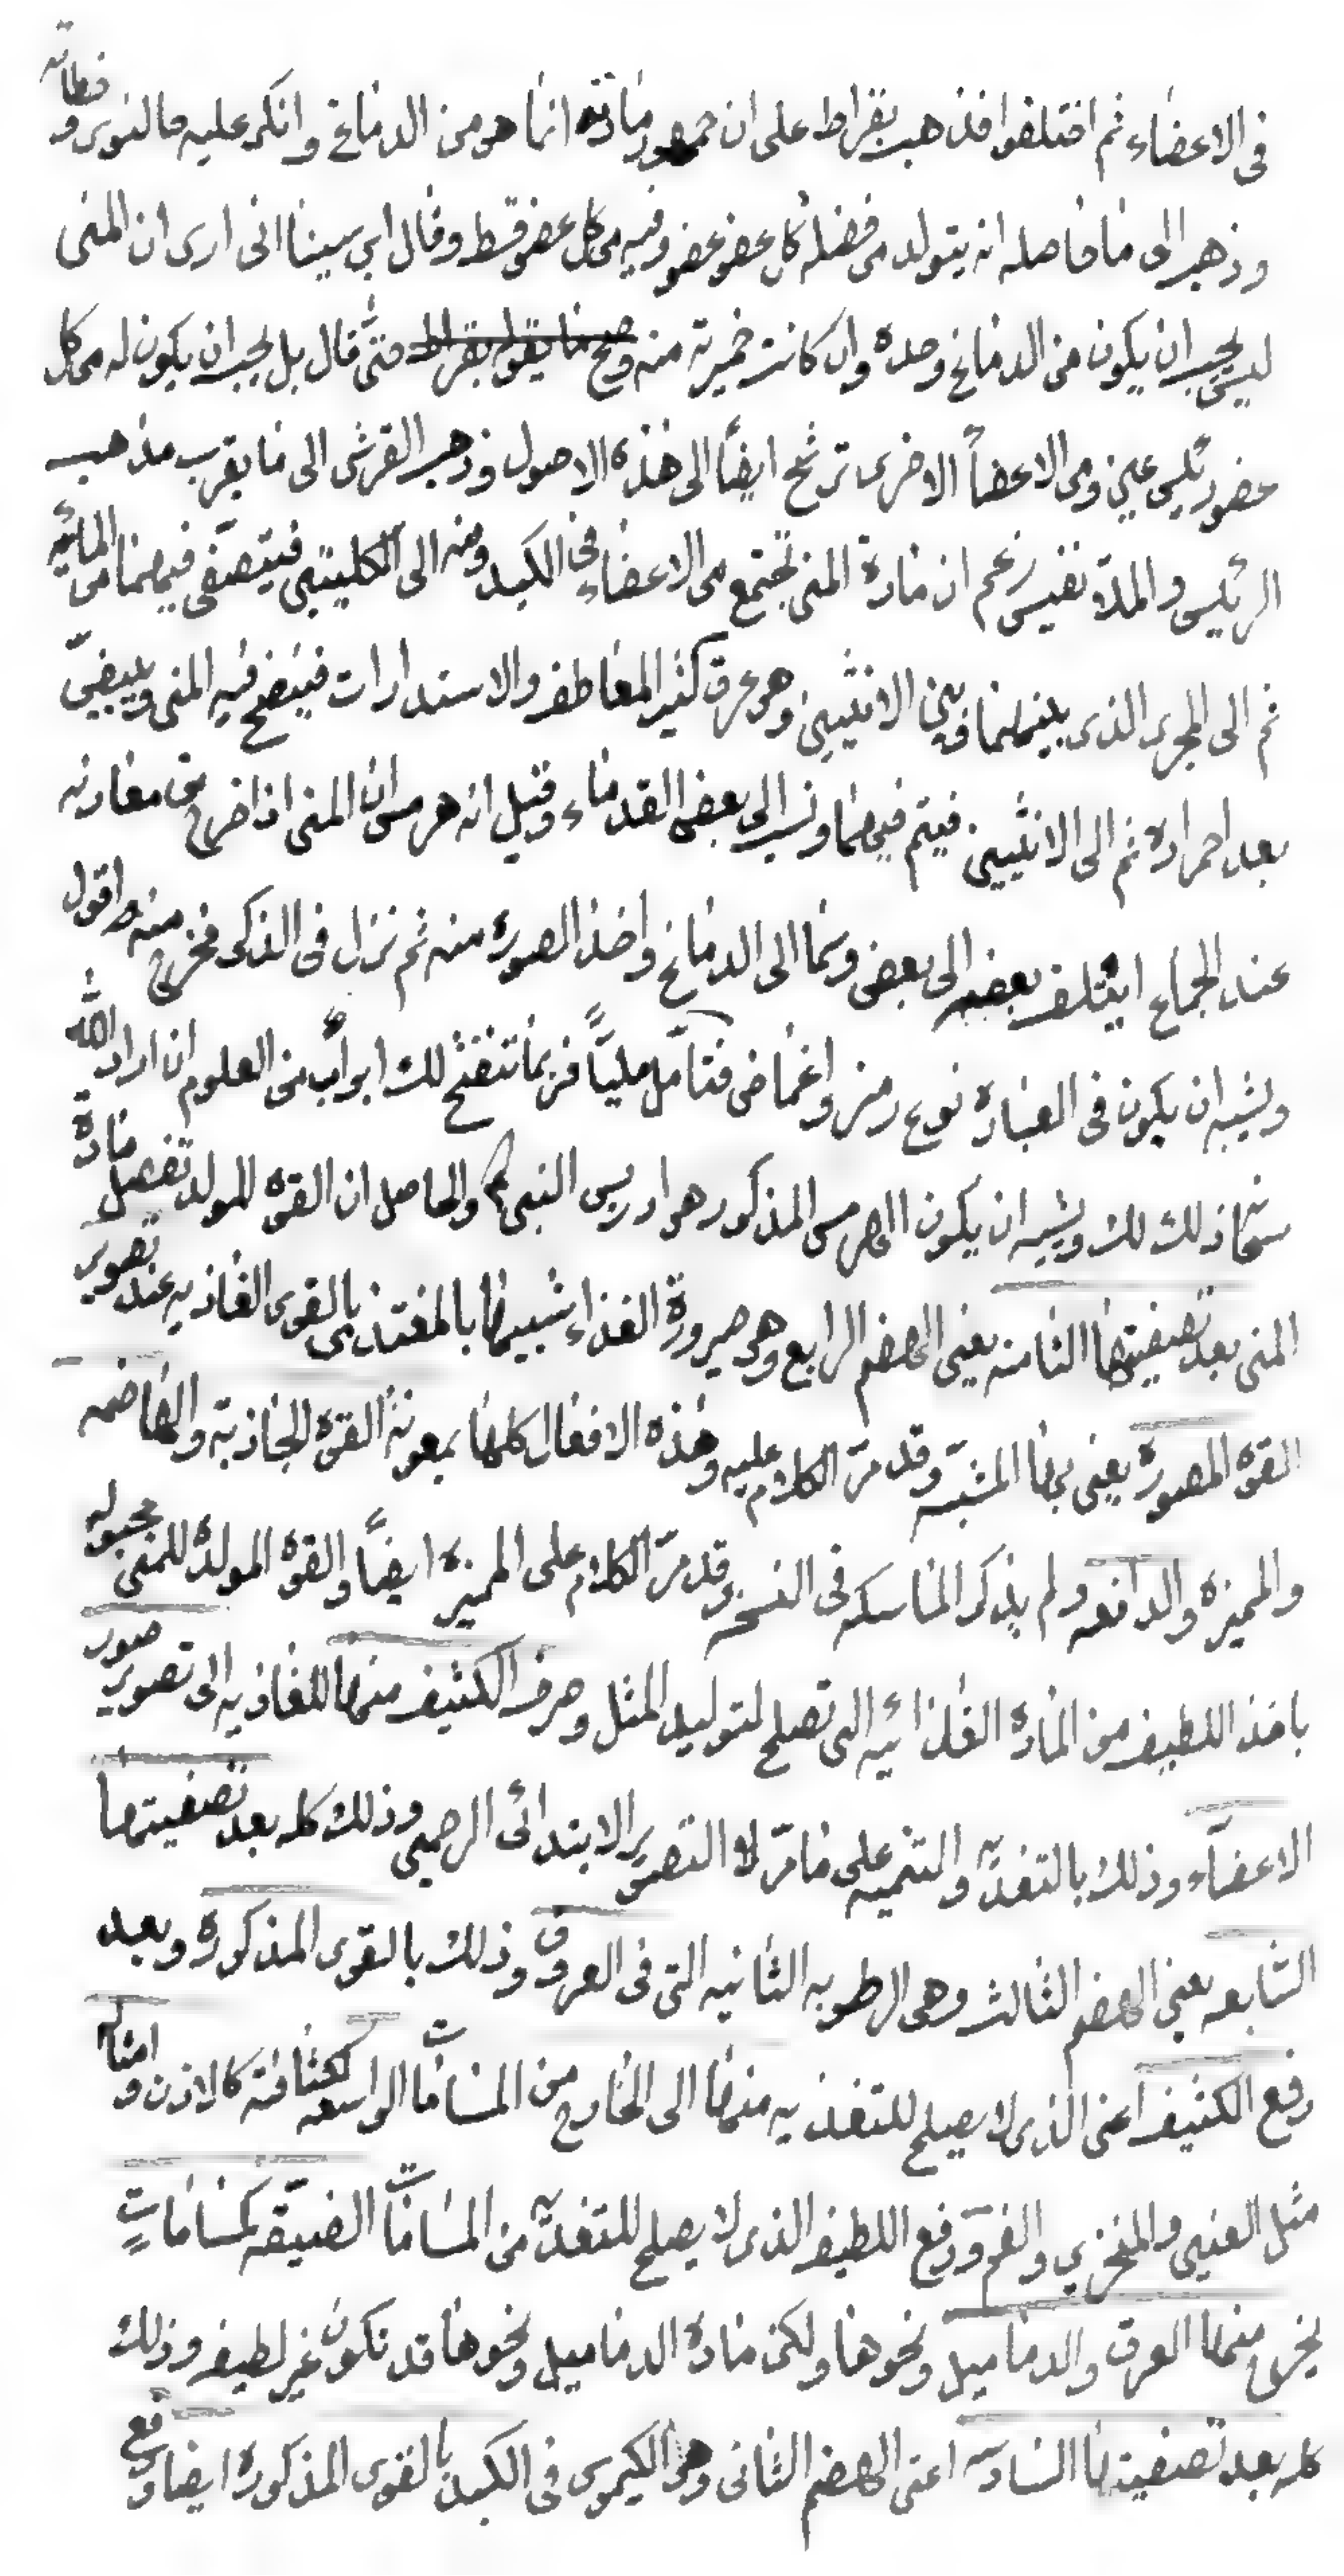 فى الاعضاء ثم اختلفوا فذهب بقراط على ان جمهور مادته انما هو من الدماغ وانكر عليه جالنوس وخطاته
وذهب الى ما حاصله انه يتولد من فضلة كل عضو عضو وفيه من كل عضو قسط وقال ابن سينا انى ارى ان المنى
ليس يجب ان يكون من الدماغ وحده وان كانت خميرته منه وصح ما يقوله بقراط حتى قال بل يجب ان يكون له من كل
عضو رئيس عين ومن الاعضاء الاخرى ترشح ايضاً الى هذه الاصول وذهب القرشى الى ما يقرب مذهب
الرئيس والملا نفيس زعم ان مادة المنى تجتمع من الاعضاء فى الكبد ومنه الى الكليتين فيتصفى فيهما من المائيه
ثم الى المجرى الذى بينهما وبين الانثيين وهو عرق كثير المعاطف والاستدارات فينضج فيه المنى ويبيضّ
بعد احمراره ثم الى الانثيين فيتم فيهما ونسب الى بعض القدماء وقيل انه هرمس ان المنى اذا خرج من معادنه
عند الجماع ايتلف بعضه الى بعض وسما الى الدماغ واخذ الصوره منه ثم نزل فى الذكر فخرج منه واقول
ويشبه ان يكون فى العباره نوع رمز واغماض فتأمّل مليّاً فربما تنفتح لك ابوابٌ من العلوم ان اراد الله
سبحانه ذلك لك ويشبه ان يكون الهرمس المذكور هو ادريس النبى والحاصل ان القوه المولد تفصل مادة
المنى بعد تصفيتها الثامنه يعنى الهضم الرابع وهو صيرورة الغذاء شبيها بالمغتذى بالقوى الغاذيه عند تصوير
القوه المصوره يعنى بها المشبّه وقد مرّ الكلام عليه وهذه الافعال كلها بمعونة القوه الجاذبة والهاضمه
والمميزه والدافعه ولم يذكر الماسكه فى النسخه وقد مرّ الكلام على المميزه ايضاً والقوه المولده للمنى مجبوله
باخذ اللطيف من المادة الغذائيه التى تصلح لتوليد المثل وصرف الكثيف منها للغاذيه الى تصوير صور
الاعضاء وذلك بالتغذيه والتنميه على ما مرّ لا التصوير الابتدائى الرحمى وذلك كله بعد تصفيتها
السّابعه يعنى الهضم الثالث وهى الرطوبه الثانيه التى فى العروق وذلك بالقوى المذكوره وبعد
دفع الكثيف اعنى الذى لا يصلح للتغذيه منها الى الخارج من المسامات الواسعه لكثافته كالاذن وامثاله
مثل العنيى والمنخرين والفم ودفع اللطيف الذى لا يصلح للتغذيه من المسامات الضيقه كمسامات
يخرج منها العرق والدماميل ونحوها ولكن مادة الدماميل ونحوها قد تكون غير لطيف وذلك
كله بعد تصفيتها السادسه اعنى الهضم الثانى وهو الكيموس فى الكبد بالقوى المذكوره ايضا ودفع